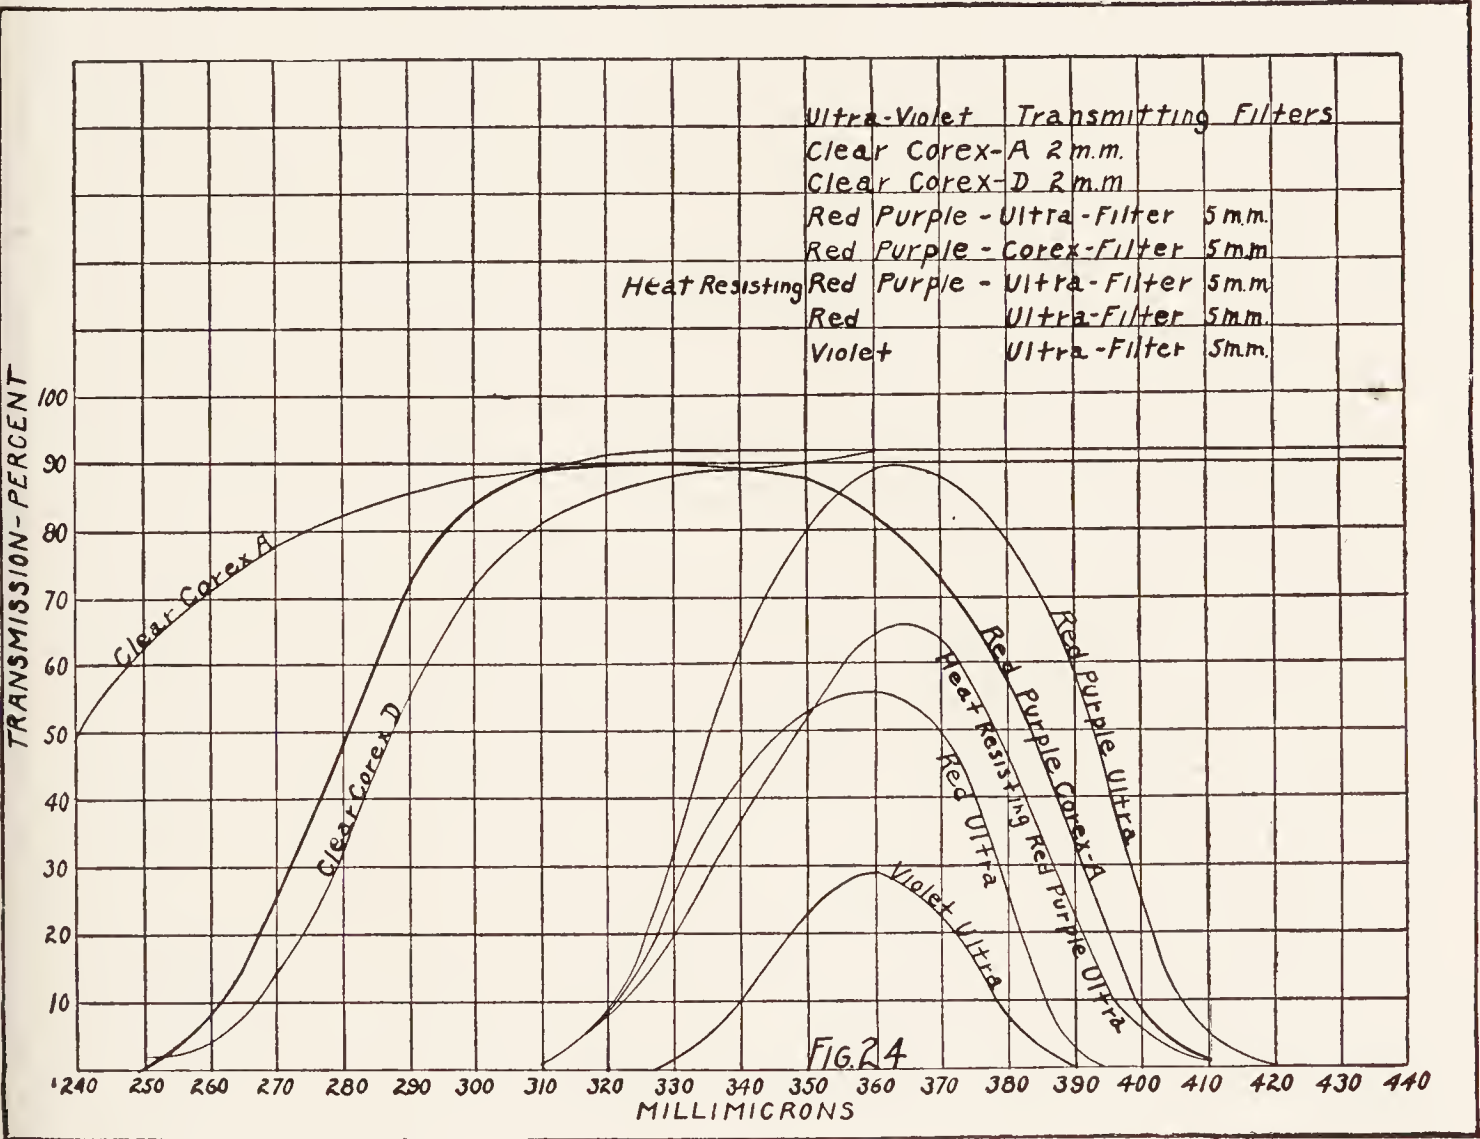 Ultra-Violet Transmitting Filters
Clear Corex-A 2 m.m.
Clear Corex-D 2 m.m
Red Purple - Ultra-Filter 5 m.m.
Red Purple - Corex-Filter 5 mm
Heat Resisting Red Purple - Ultra-Filter 5 m.m
Red Ultra-Filter 5 mm.
Violet Ultra-Filter 5 m.m.
TRANSMISSION-PERCENT
100
90
80
70
60
50
40
30
20
10
Clear Corex A
Clear Corex D
Red Purple Ultra
Red Purple Corex-A
Heat Resisting Red Purple Ultra
Red Ultra
Violet Ultra
FIG. 24
240 250 260 270 280 290 300 310 320 330 340 350 360 370 380 390 400 410 420 430 440
MILLIMICRONS